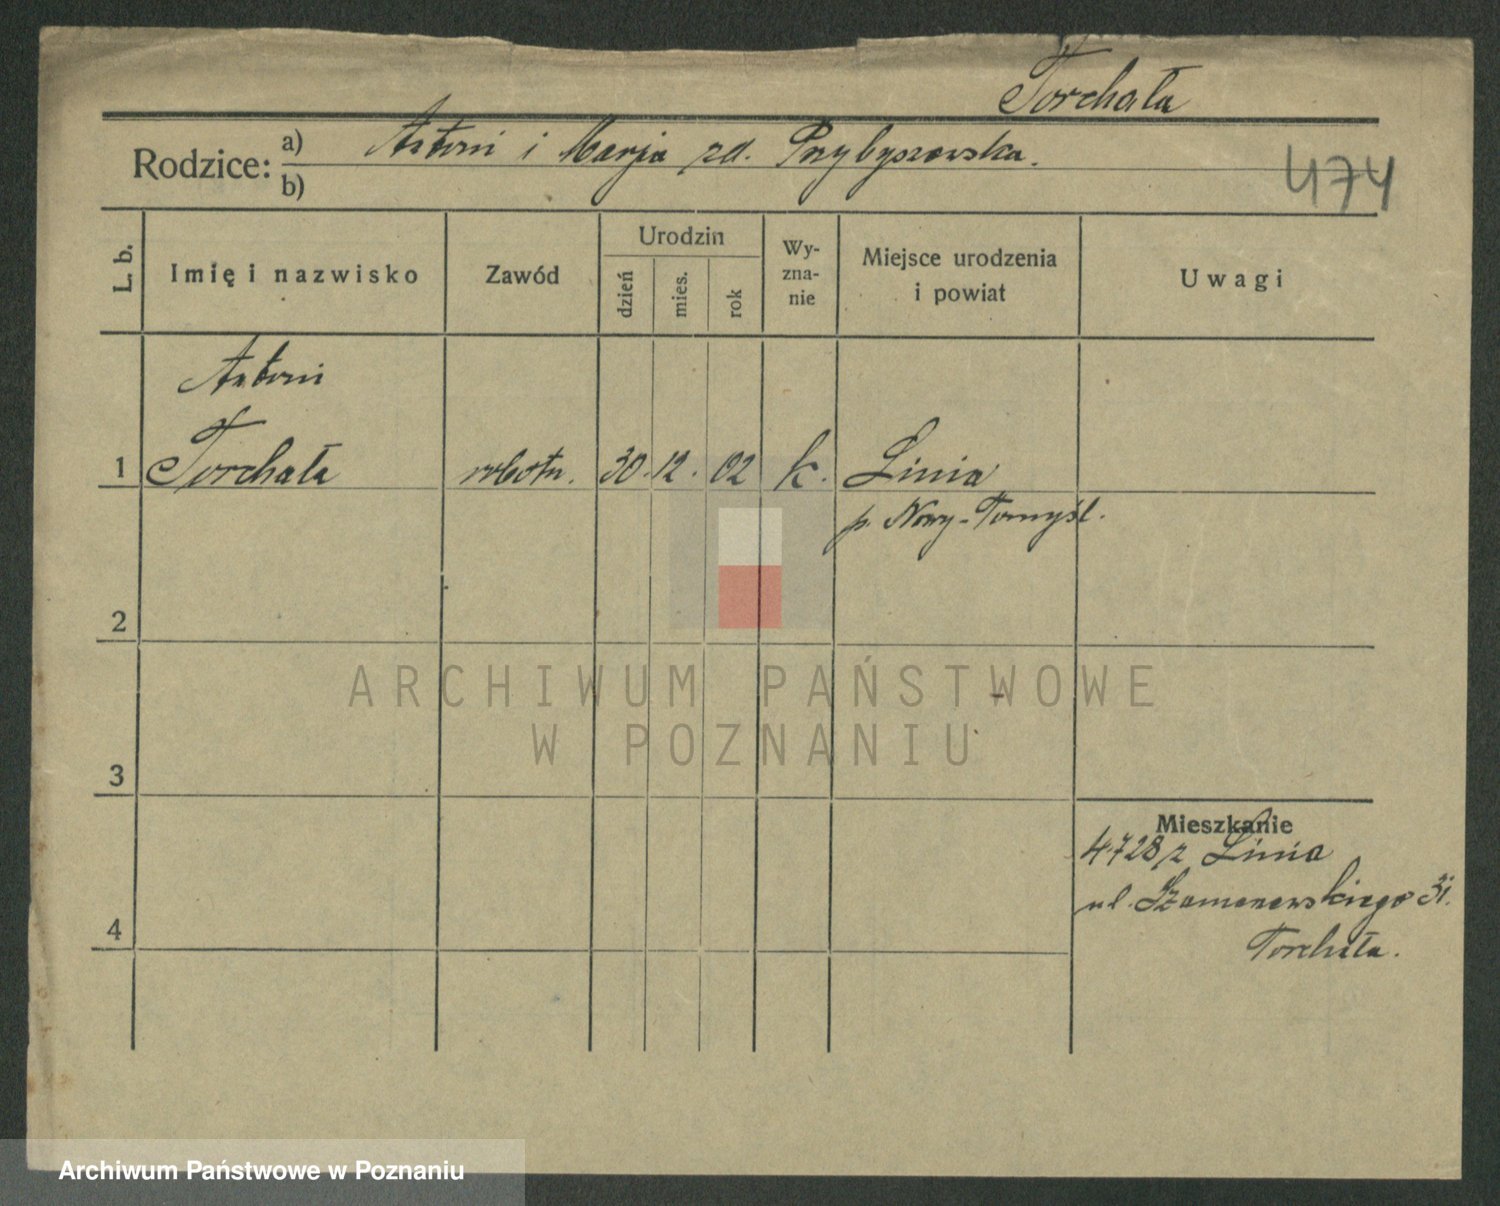 Torchała
Rodzice: a) Antoni i Marja zd. Przybyszewska.
b)
474
L. b.
Imię i nazwisko
Zawód
Urodzin
dzień
mies.
rok
Wy-
zna-
nie
Miejsce urodzenia
i powiat
Uwagi
Antoni
1 Torchała robotn. 30. 12. 02 k. Linia
p. Nowy-Tomyśl.
2
3
4
ARCHIWUM PAŃSTWOWE
W POZNANIU
Mieszkanie
4.728 z Linia
ul. 31.
Torchała.
Archiwum Państwowe w Poznaniu